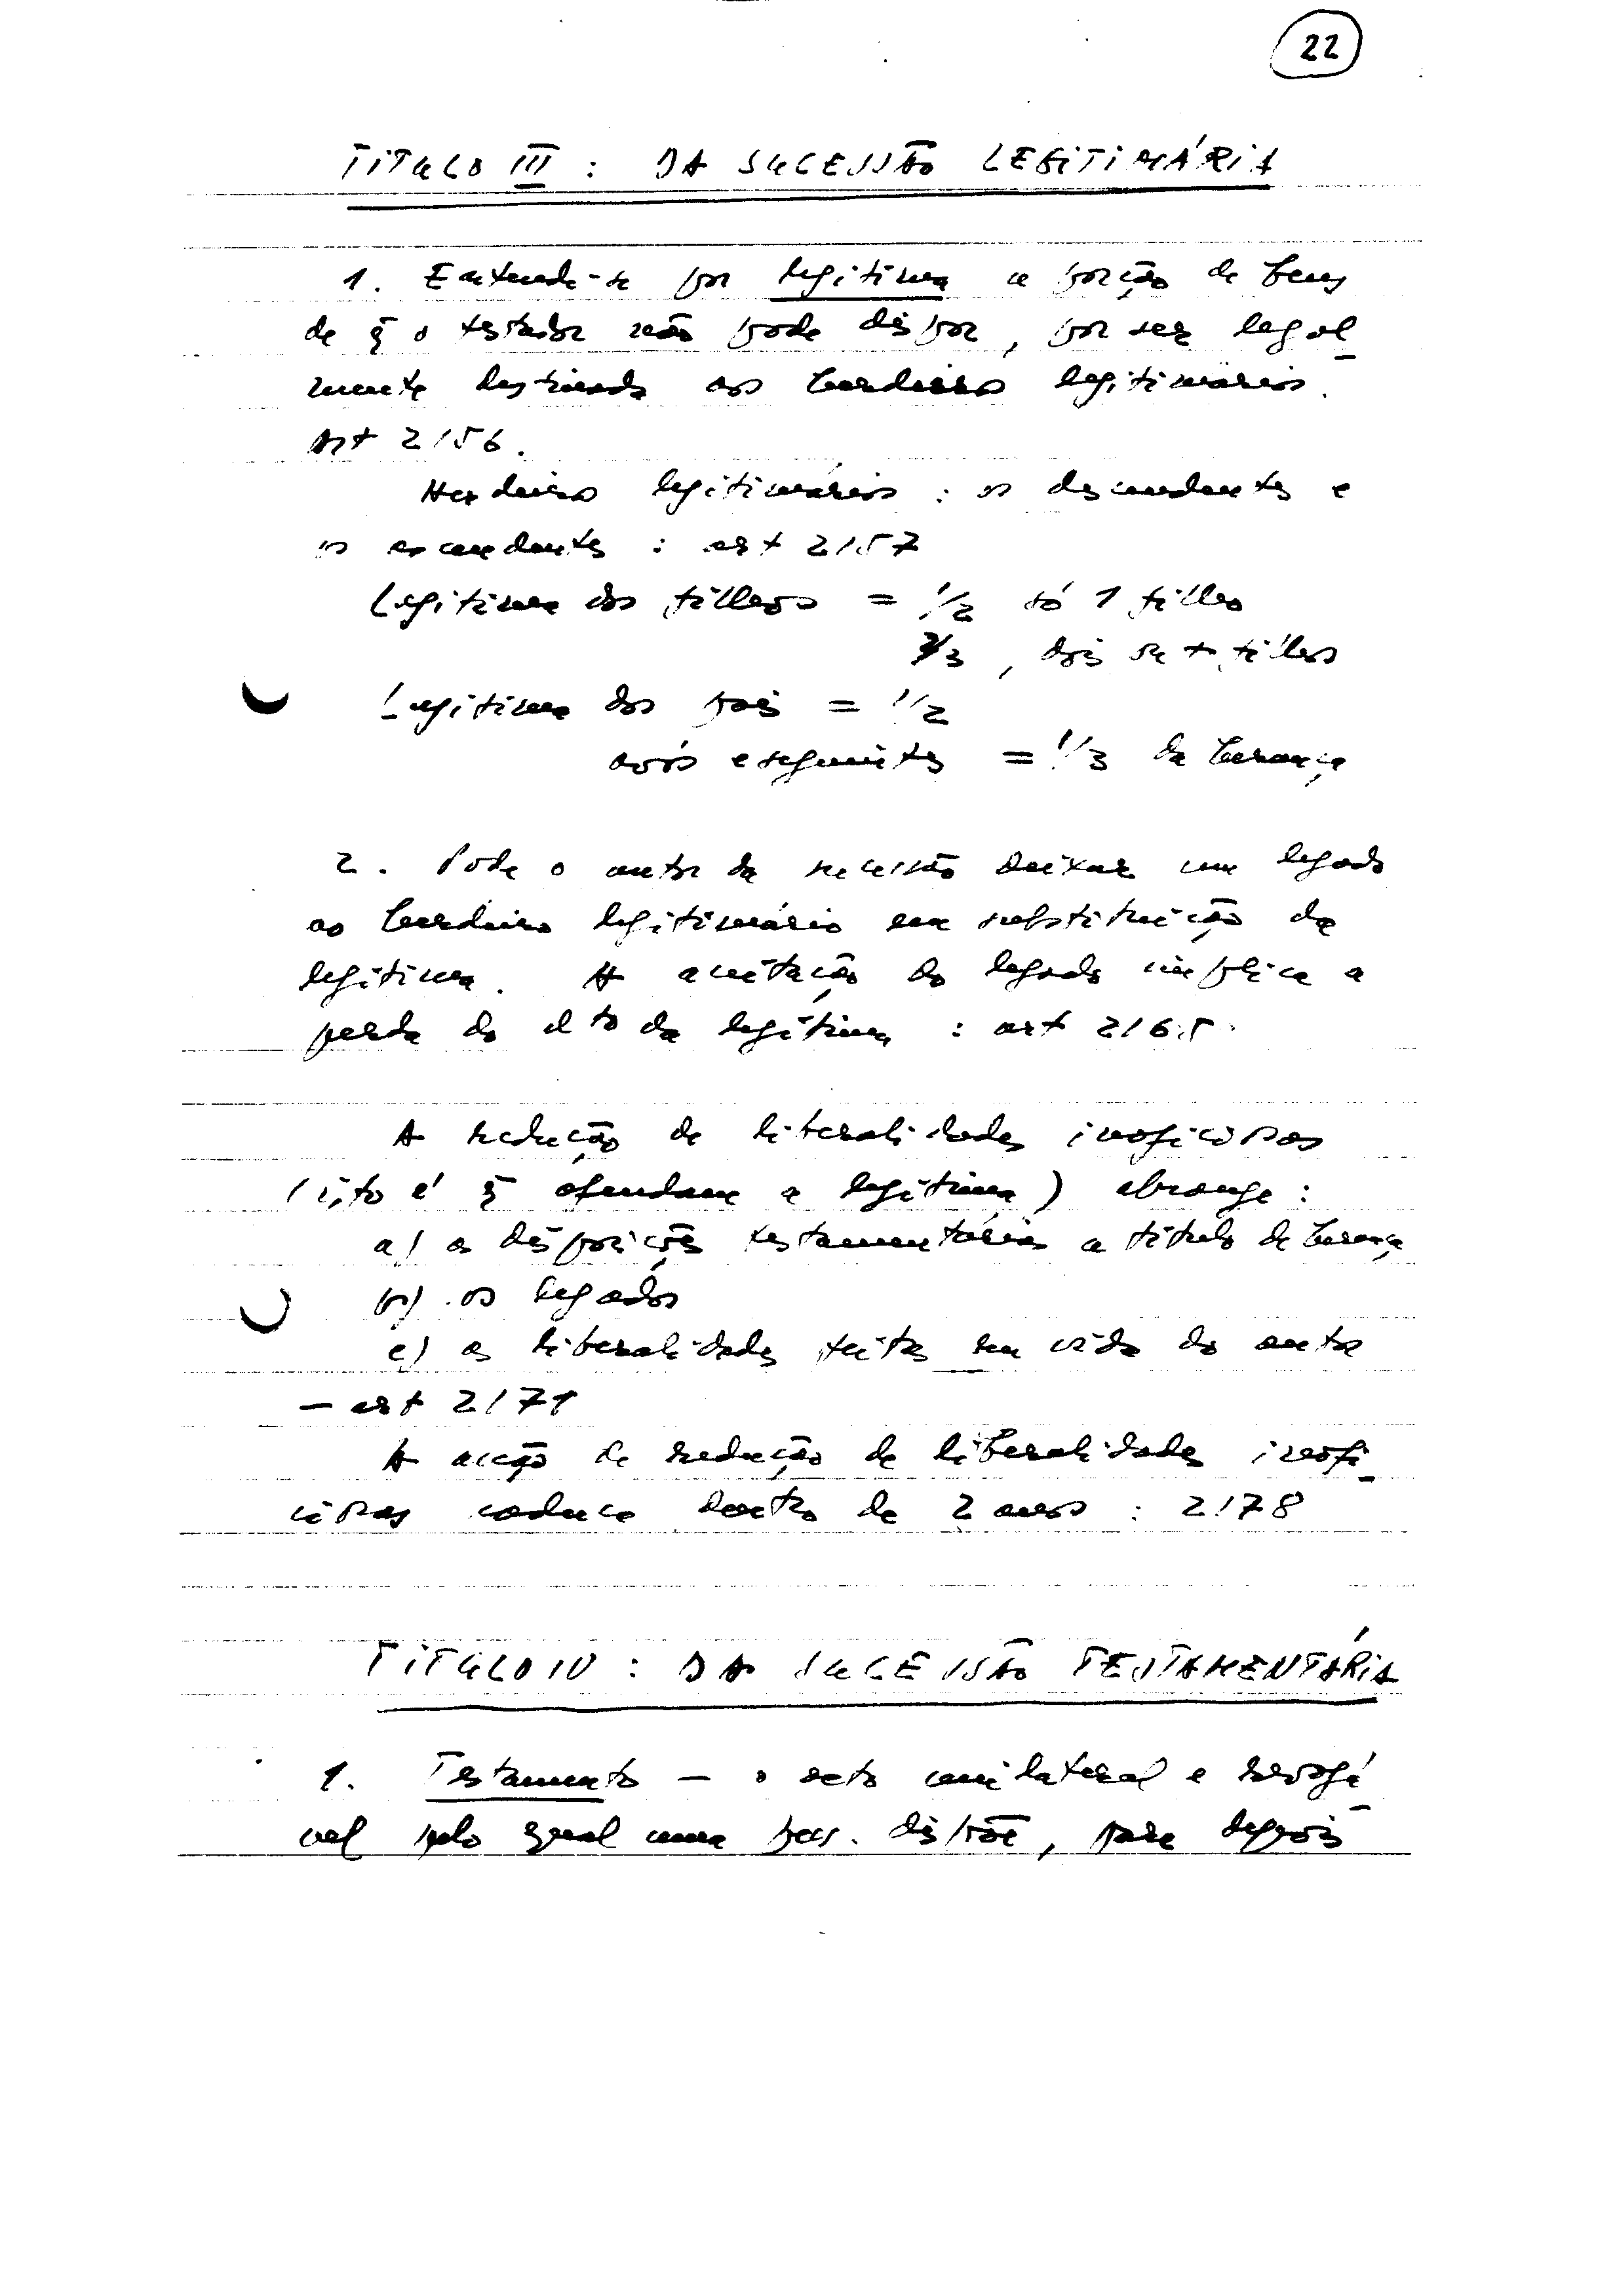 22
TITULO III : DA SUCESSÃO LEGITIMÁRIA
1. Entende-se por legitima a porção de bens
de q̃ o testador não pode dispor, por ser legal
mente destinada aos herdeiros legitimários.
Art 2156.
Herdeiros legitimários : os descendentes e
os ascendentes : art 2157
Legitima dos filhos = 1/2 só 1 filho
2/3, dois ou + filhos
Legitima dos pais = 1/2
avós e seguintes = 1/3 da herança
2. Pode o autor da sucessão deixar um legado
ao herdeiro legitimário em substituição da
legítima. A aceitação do legado implica a
perda do dto da legítima : art 2165
A redução de liberalidades inoficiosas
(isto é q̃ ofendam a legítima) abrange :
a) as disposições testamentárias a título de herança
b) os legados
c) as liberalidades feitas em vida do autor
— art 2171
A acção de redução de liberalidades inofi
ciosas caduca dentro de 2 anos : 2178
TITULO IV : DA SUCESSÃO TESTAMENTÁRIA
1. Testamento — o acto unilateral e revogá
vel pelo qual uma pess. dispõe, para depois